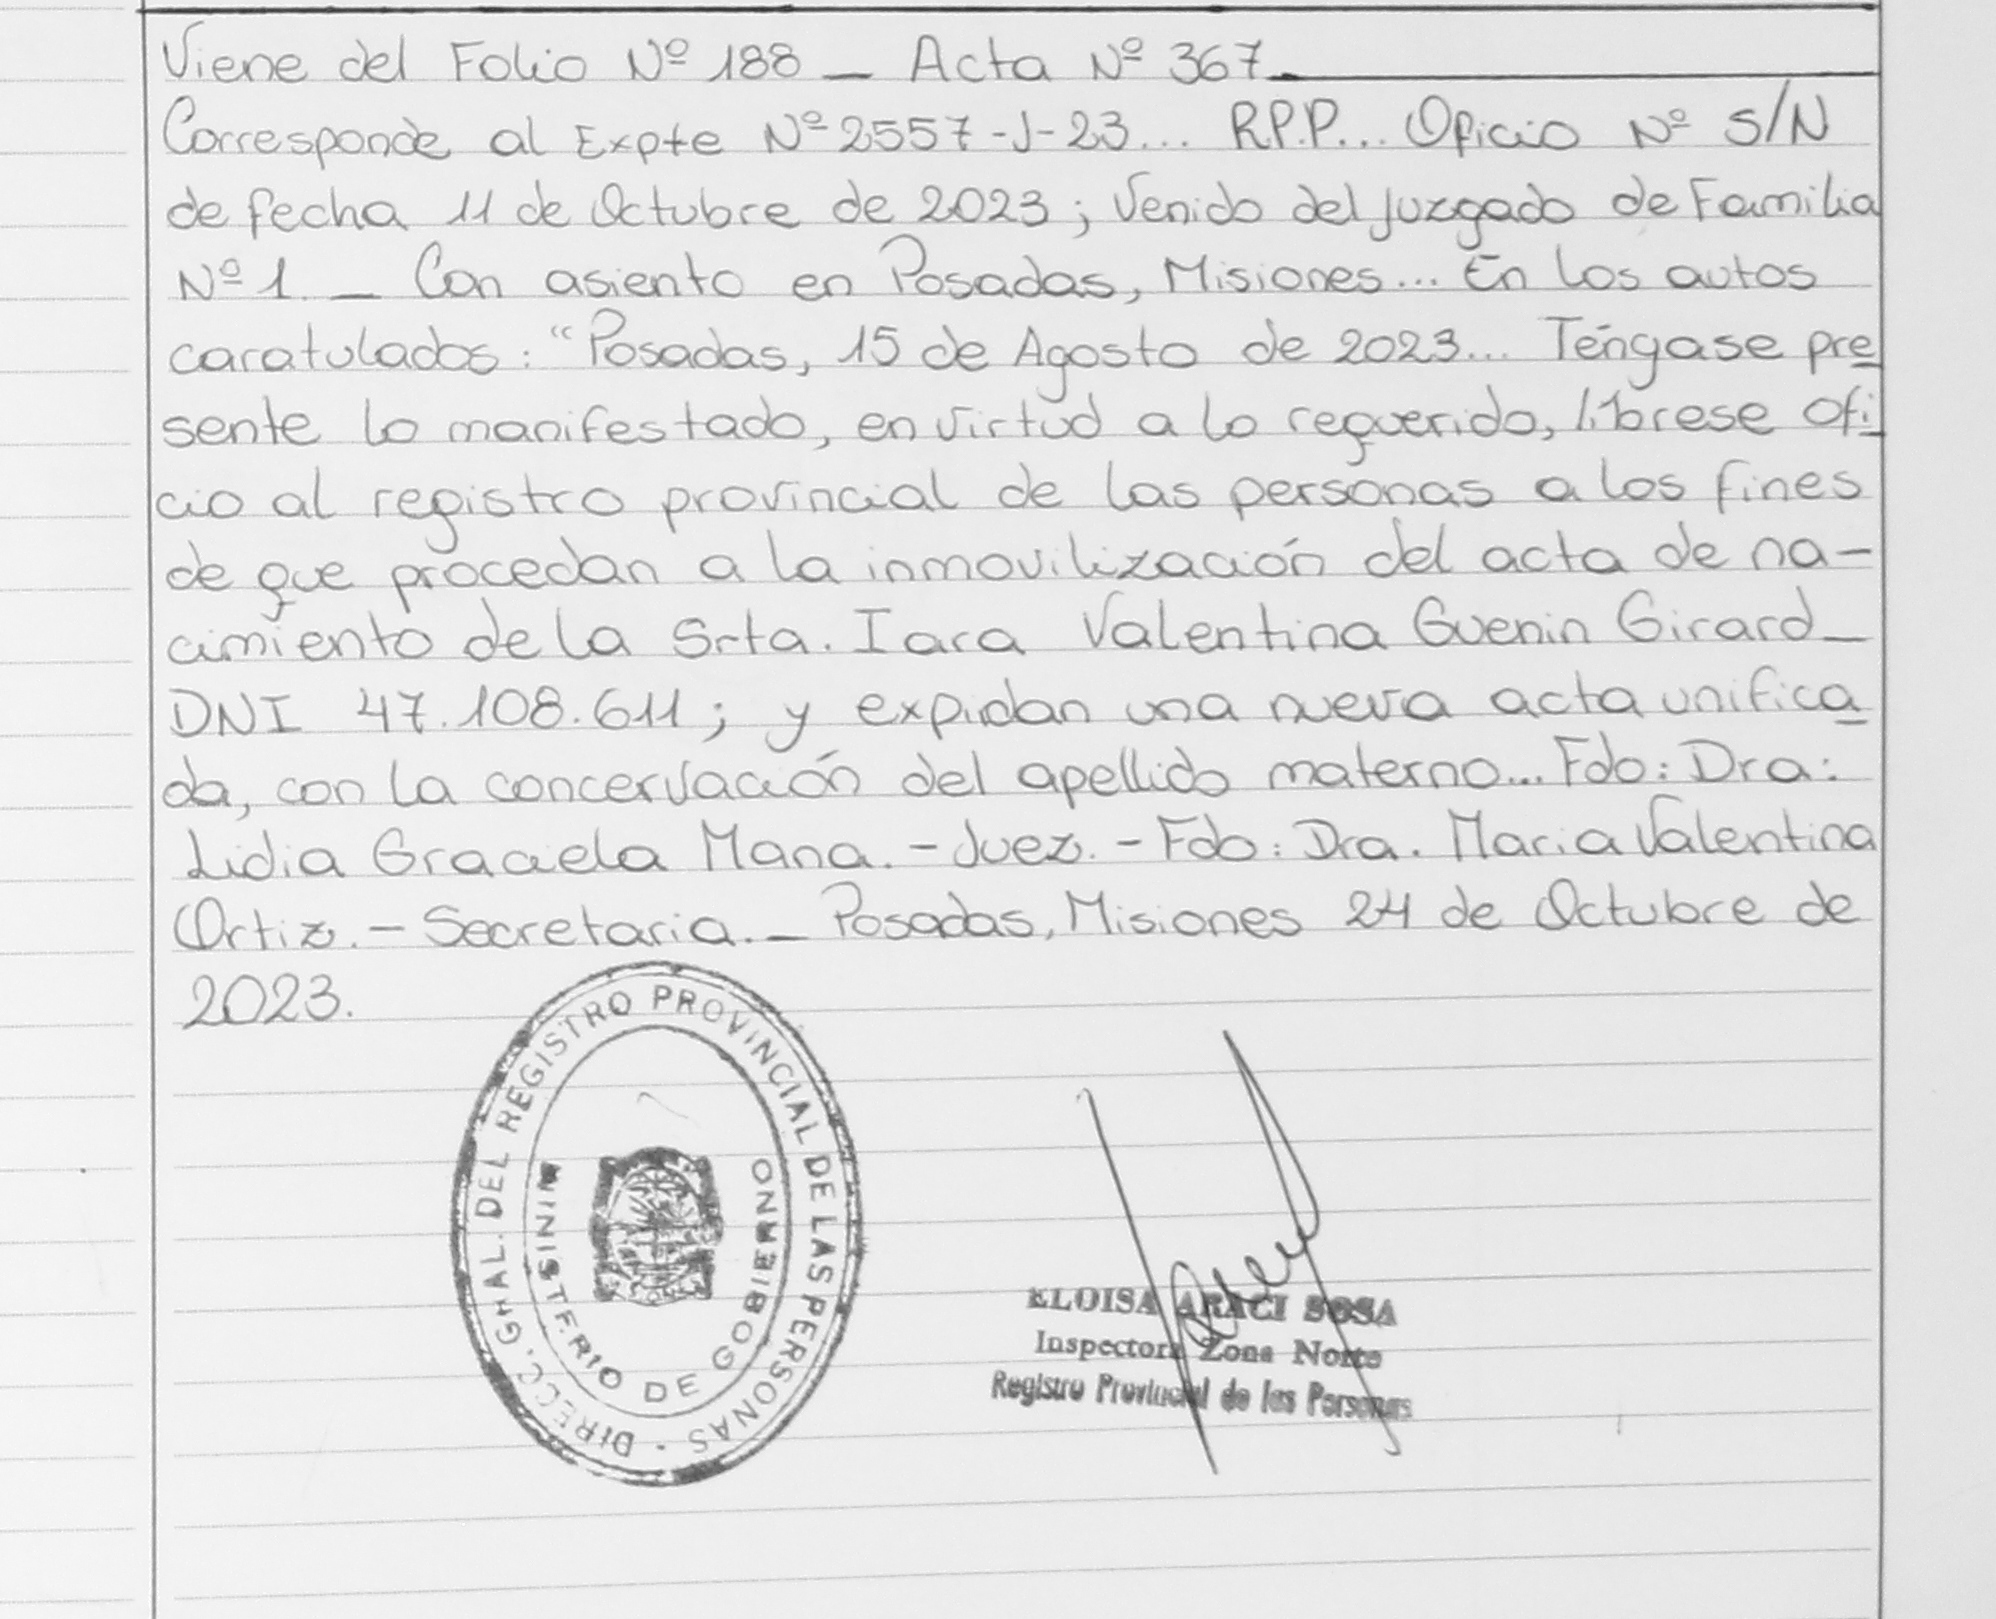 Viene del Folio Nº 188 _ Acta Nº 367_
Corresponde al Expte Nº 2557-J-23... R.P.P... Oficio Nº S/N
de fecha 11 de Octubre de 2023; Venido del Juzgado de Familia
Nº 1. _ Con asiento en Posadas, Misiones... En los autos
caratulados: "Posadas, 15 de Agosto de 2023... Téngase pre
sente lo manifestado, en virtud a lo requerido, líbrese ofi
cio al registro provincial de las personas a los fines
de que procedan a la inmovilización del acta de na-
cimiento de la Srta. Iara Valentina Guenin Girard_
DNI 47.108.611; y expidan una nueva acta unifica
da, con la concervación del apellido materno... Fdo: Dra:
Lidia Graciela Mana. - Juez. - Fdo: Dra. Maria Valentina
Ortiz. - Secretaria. _ Posadas, Misiones 24 de Octubre de
2023.
DIRECC. GRAL. DEL REGISTRO PROVINCIAL DE LAS PERSONAS ·
MINISTERIO DE GOBIERNO
ELOISA ARACI SOSA
Inspectora Zona Norte
Registro Provincial de las Personas